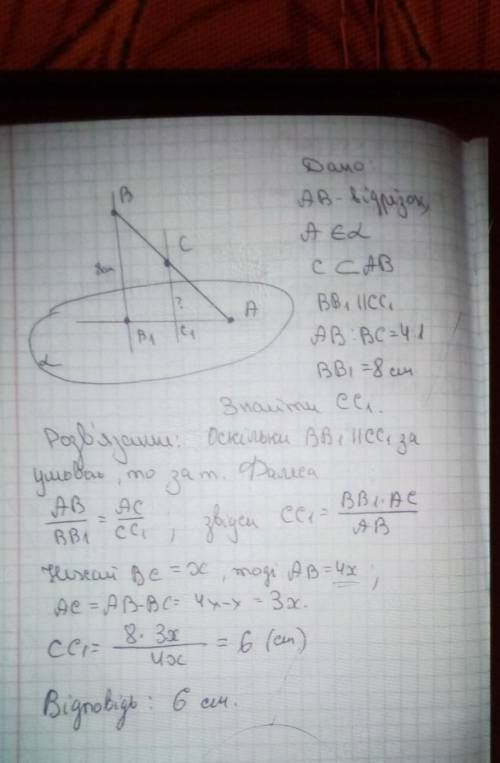 B
C
8см
?
A
B₁
C₁
α
Дано:
AB - відрізок,
A ∈ α
C ⊂ AB
BB₁ || CC₁
AB : BC = 4:1
BB₁ = 8 см
Знайти CC₁.
Розв'язання: Оскільки BB₁ || CC₁ за
умовою, то за т. Фалеса
AB/BB₁ = AC/CC₁ ; звідси CC₁ = BB₁·AC/AB
Нехай BC = x, тоді AB = 4x ;
AC = AB-BC = 4x-x = 3x.
CC₁ = 8·3x/4x = 6 (см)
Відповідь: 6 см.